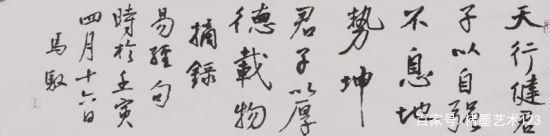 天行健君
子以自强
不息地
势坤
君子以厚
德載物
摘錄
易經句
時於壬寅
四月十六日
馬馭
百家号/翰墨艺术123